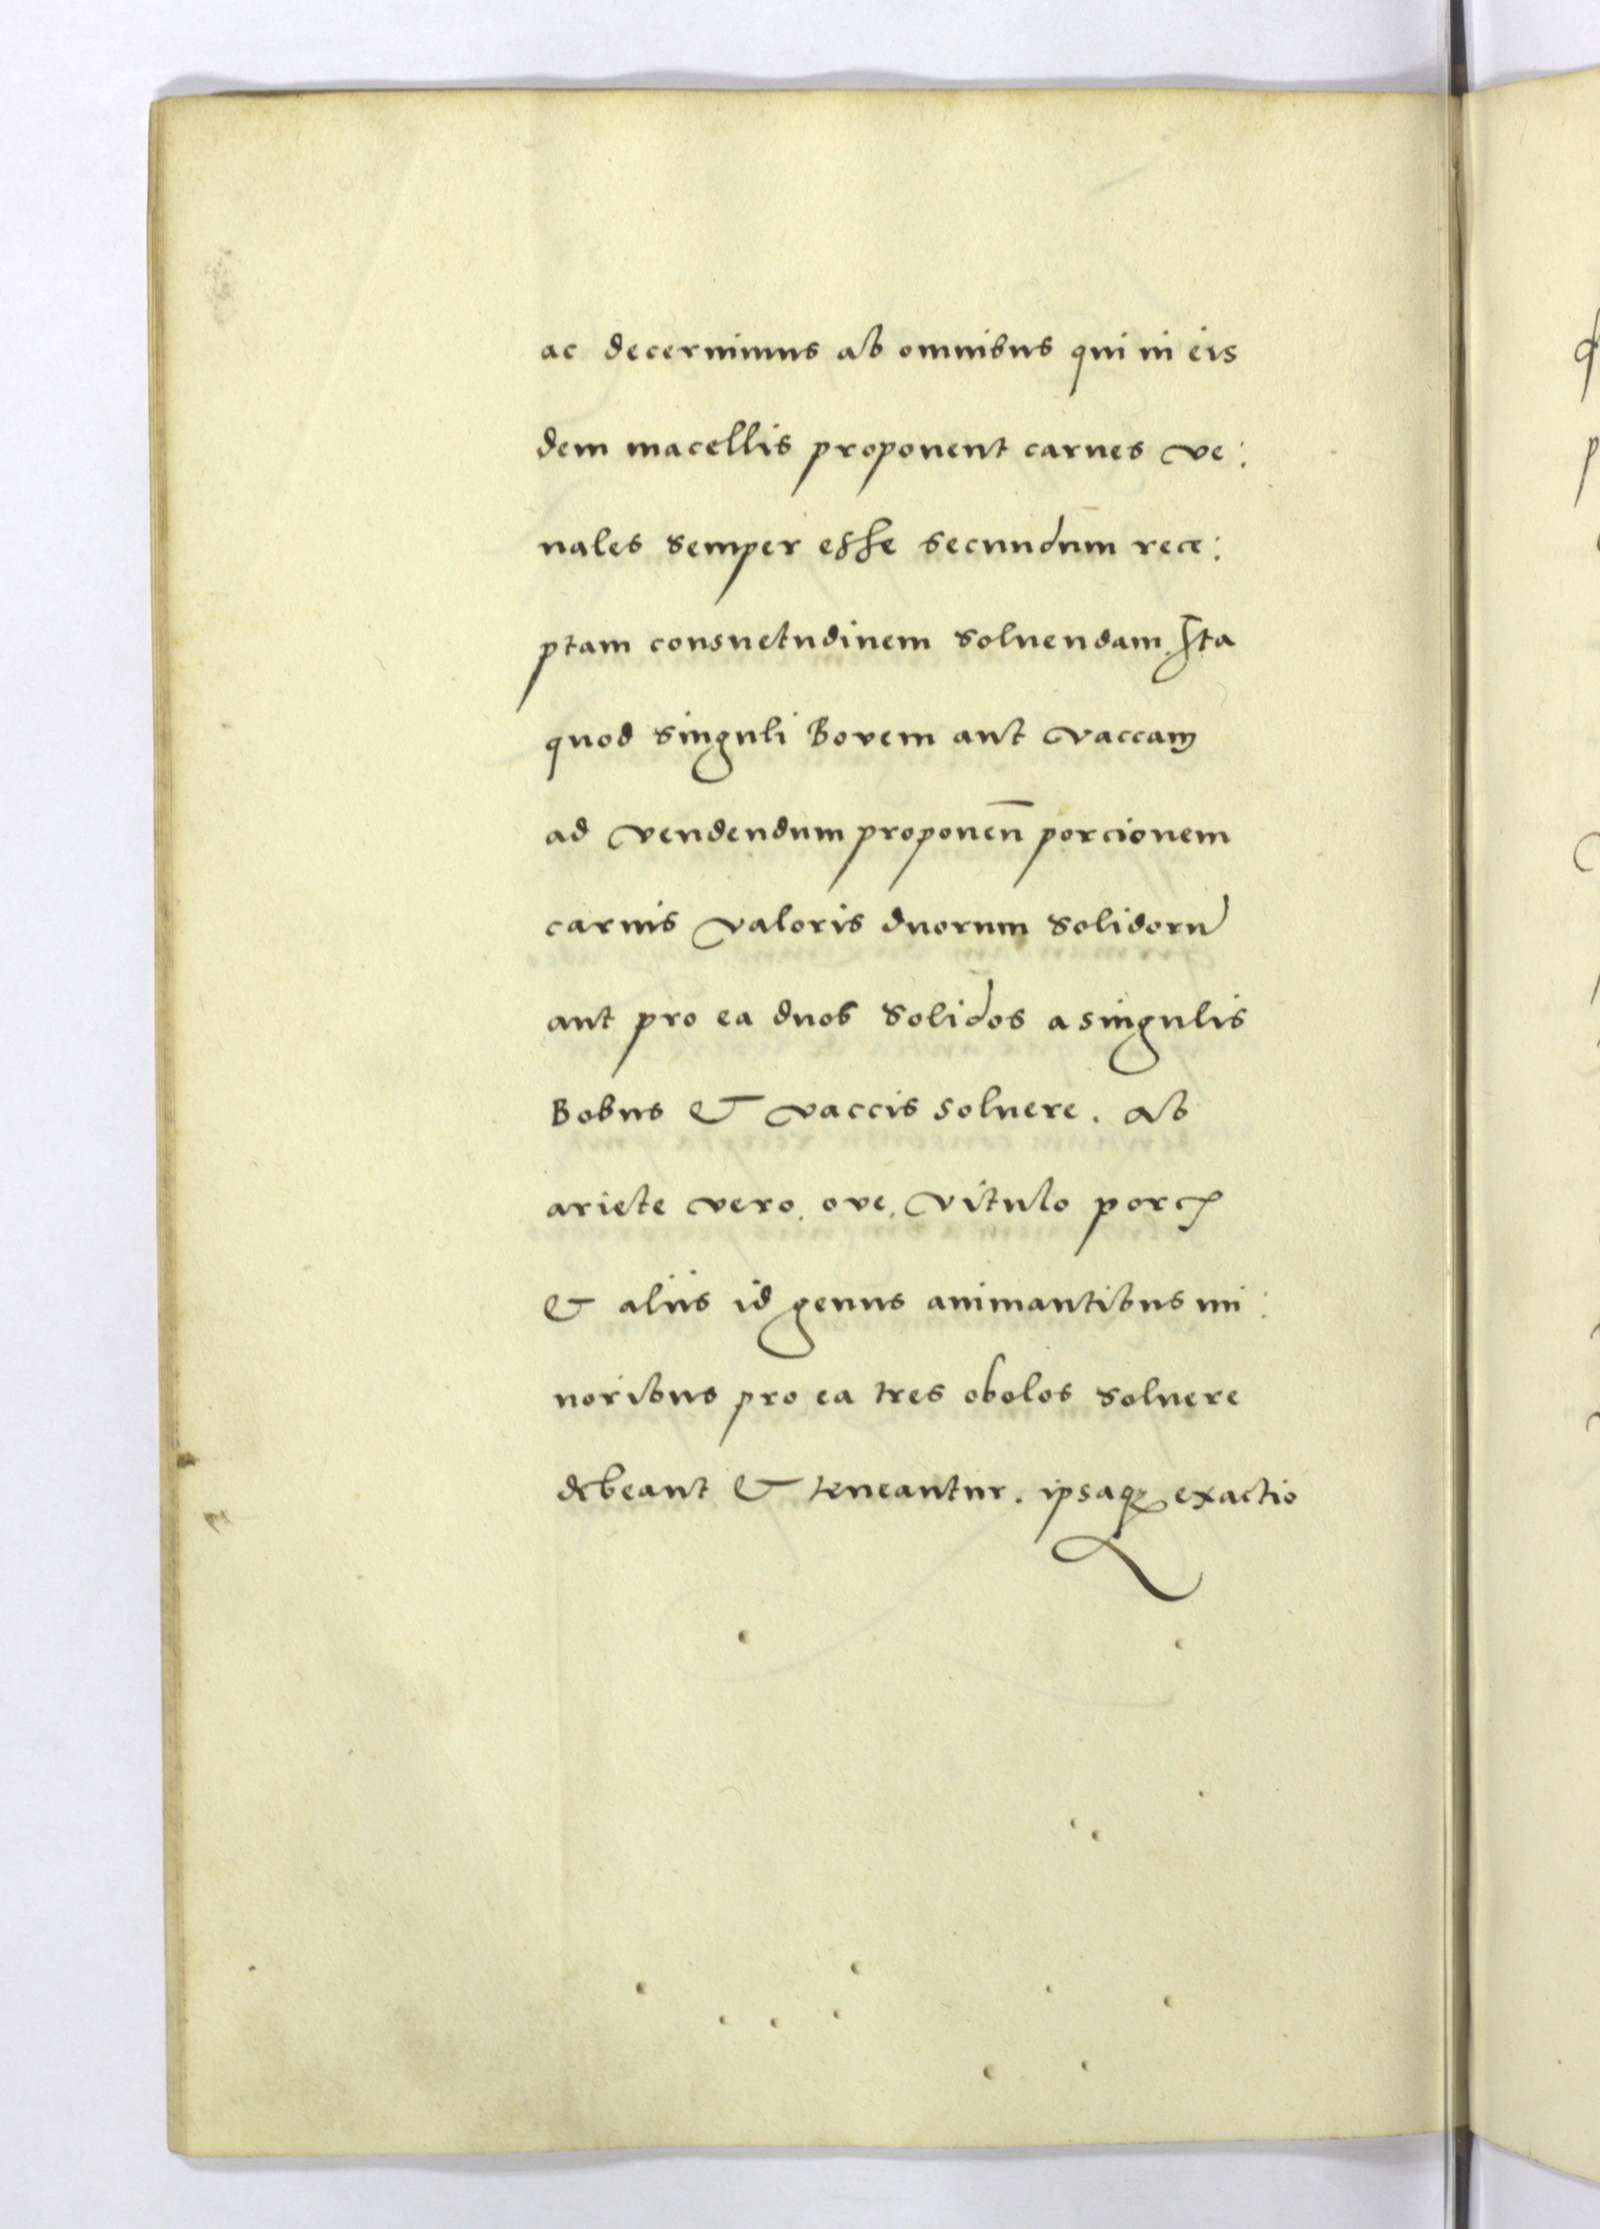 ac decernimus ab omnibus qui in eis
dem macellis proponent carnes ve:
nales semper esse secundum rece:
ptam consuetudinem soluendam. Ita
quod singuli Bovem aut vaccam
ad vendendum proponeñ porcionem
carnis valoris duorum solidorū
aut pro ea duos solidos a singulis
Bobus & vaccis soluere. Ab
ariete vero. ove. vitulo porco
& aliis id genus animantibus mi:
noribus pro ea tres obolos soluere
debeant & teneantur. ipsaqꝫ exactio